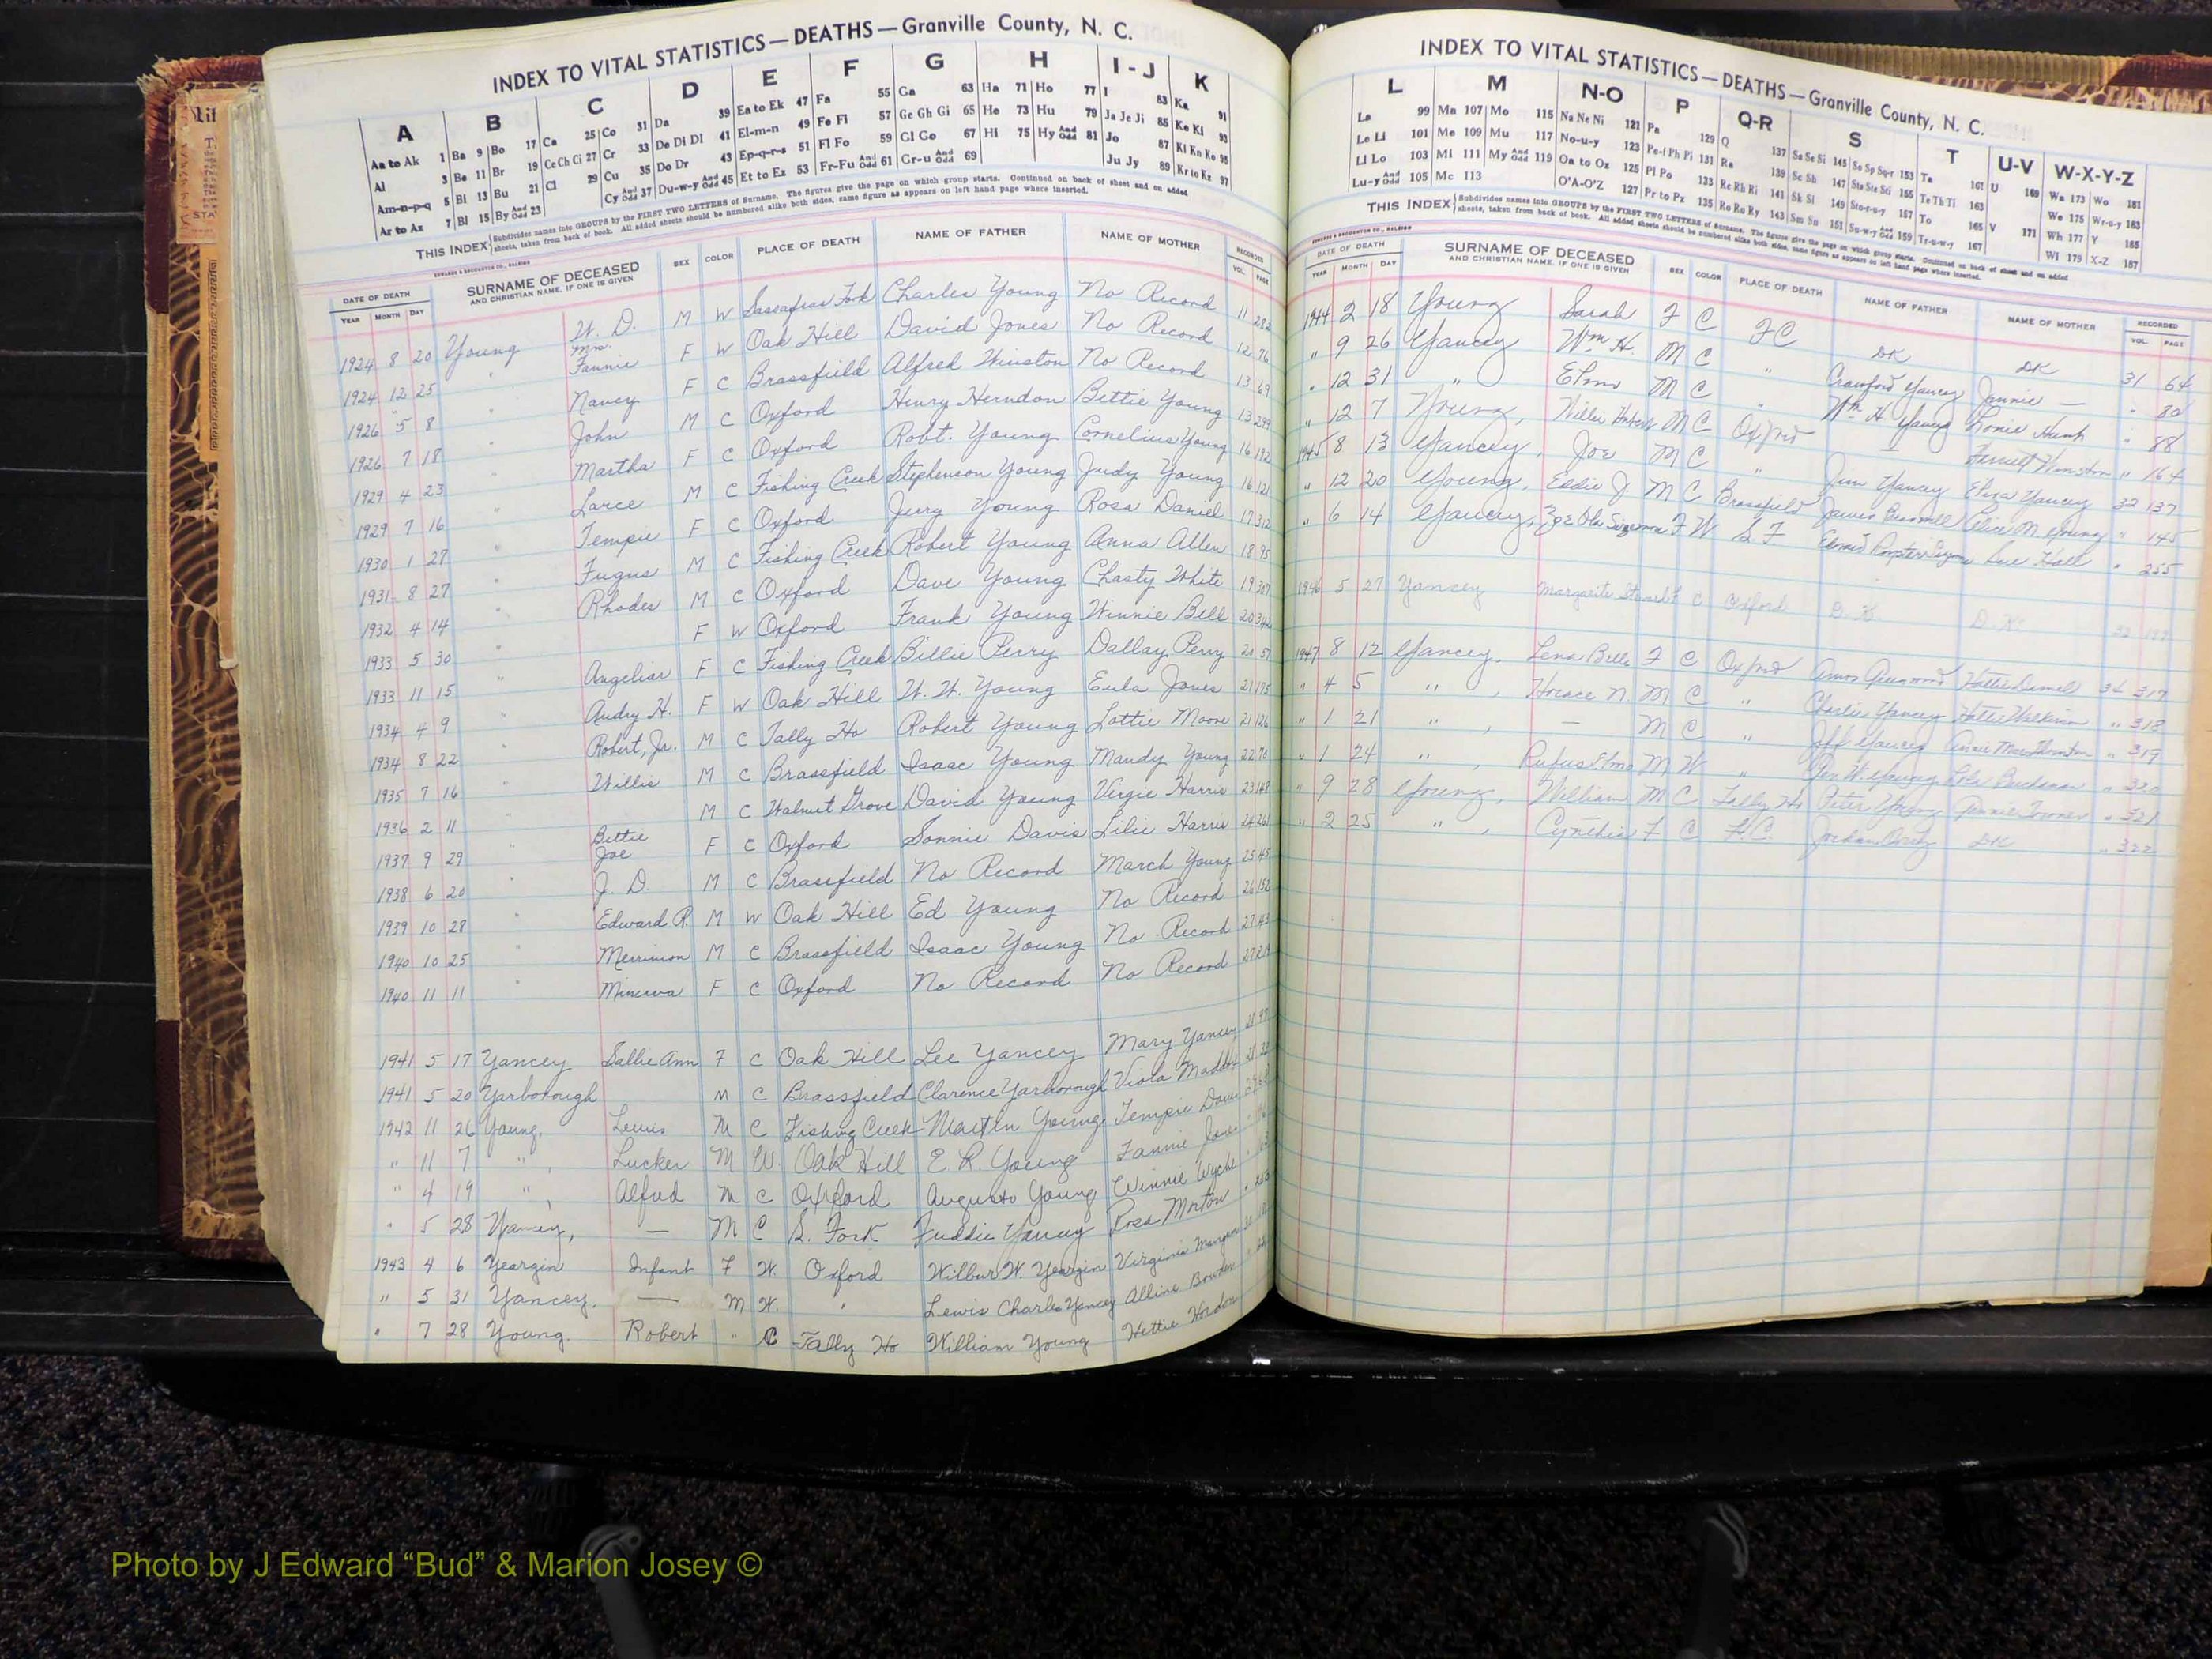 INDEX TO VITAL STATISTICS—DEATHS—Granville County, N. C.
A B C D E F G H I-J K
Aa to Ak 1 Ba 9 Bo 17 Ca 25 Co 31 Da 39 Ea to Ek 47 Fa 55 Ga 63 Ha 71 Ho 77 I 83 Ka 91
Al 3 Be 11 Br 19 Ce Ch Ci 27 Cr 33 De Di Dl 41 El-m-n 49 Fe Fi 57 Ge Gh Gi 65 He 73 Hu 79 Ja Je Ji 85 Ke Ki 93
Am-n-p-q 5 Bi 13 Bu 21 Cl 29 Cu 35 Do Dr 43 Ep-q-r-s 51 Fl Fo 59 Gl Go 67 Hi 75 Hy And Odd 81 Jo 87 Kl Kn Ko 95
Ar to Az 7 Bl 15 By And Odd 23 Cy And Odd 37 Du-w-y And Odd 45 Et to Ez 53 Fr-Fu And Odd 61 Gr-u And Odd 69 Ju Jy 89 Kr to Kz 97
THIS INDEX Subdivides names into GROUPS by the FIRST TWO LETTERS of Surname. The figures give the page on which group starts. Continued on back of sheet and on added
sheets, taken from back of book. All added sheets should be numbered alike both sides, same figure as appears on left hand page where inserted.
EDWARDS & BROUGHTON CO., RALEIGH
DATE OF DEATH SURNAME OF DECEASED SEX COLOR PLACE OF DEATH NAME OF FATHER NAME OF MOTHER RECORDED
YEAR MONTH DAY AND CHRISTIAN NAME, IF ONE IS GIVEN VOL. PAGE
1924 8 20 Young W. D. M W Sassafras Fork Charles Young No Record 11 282
1924 12 25 " Mrs. Fannie F W Oak Hill David Jones No Record 12 76
1926 5 8 " Nancy F C Brassfield Alfred Winston No Record 13 69
1926 7 18 " John M C Oxford Henry Herndon Bettie Young 13 299
1929 4 23 " Martha F C Oxford Robt. Young Cornelius Young 16 192
1929 7 16 " Larce M C Fishing Creek Stephenson Young Judy Young 16 121
1930 1 27 " Tempie F C Oxford Jerry Young Rosa Daniel 17 312
1931 8 27 " Fugus M C Fishing Creek Robert Young Anna Allen 18 95
1932 4 14 " Rhodes M C Oxford Dave Young Chasty White 19 307
1933 5 30 " F W Oxford Frank Young Winnie Bell 20 342
1933 11 15 " Angeliar F C Fishing Creek Billie Perry Dallay Perry 20 57
1934 4 9 " Audry H. F W Oak Hill W. W. Young Eula Jones 21 175
1934 8 22 " Robert, Jr. M C Tally Ho Robert Young Lottie Moore 21 126
1935 7 16 " Willis M C Brassfield Isaac Young Mandy Young 22 70
1936 2 11 " M C Walnut Grove David Young Virgie Harris 23 148
1937 9 29 " Bettie Joe F C Oxford Sonnie Davis Lilie Harris 24 261
1938 6 20 " J. D. M C Brassfield No Record March Young 25 45
1939 10 28 " Edward R. M W Oak Hill Ed Young No Record 26 152
1940 10 25 " Merrimon M C Brassfield Isaac Young No Record 27 43
1940 11 11 " Minerva F C Oxford No Record No Record
1941 5 17 Yancey Sallie Ann F C Oak Hill Lee Yancey Mary Yancey
1941 5 20 Yarborough M C Brassfield Clarence Yarborough Viola
1942 11 26 Young, Lewis M C Fishing Creek Martin Young Tempie
" 11 7 " , Lucker M W. Oak Hill E. R. Young Fannie Jones
" 4 19 " , Alfred M C Oxford Augusto Young Winnie Wyche
" 5 28 Yancey, — M C S. Fork Fuddie Yancey Rosa Morton
1943 4 6 Yeargin Infant F W. Oxford Wilbur W. Yeargin Virginia
" 5 31 Yancey, — M W. " Lewis Charles Yancey Alline
" 7 28 Young, Robert " C Tally Ho William Young Hettie
INDEX TO VITAL STATISTICS—DEATHS—Granville County, N. C.
L M N-O P Q-R S T U-V W-X-Y-Z
La 99 Ma 107 Mo 115 Na Ne Ni 121 Pa 129 Q 137 Sa Se Si 145 So Sp Sq-r 153 Ta 161 U 169 Wa 173 Wo 181
Le Li 101 Me 109 Mu 117 No-u-y 123 Pe-f Ph Pi 131 Ra 139 Sc Sh 147 Sta Ste Sti 155 Te Th Ti 163 We 175 Wr-u-y 183
Ll Lo 103 Mi 111 My And Odd 119 Oa to Oz 125 Pl Po 133 Re Rh Ri 141 Sk Sl 149 Sto-r-u-y 157 To 165 V 171 Wh 177 Y 185
Lu-y And Odd 105 Mc 113 O'A-O'Z 127 Pr to Pz 135 Ro Ru Ry 143 Sm Sn 151 Su-w-y And Odd 159 Tr-u-w-y 167 Wi 179 X-Z 187
THIS INDEX Subdivides names into GROUPS by the FIRST TWO LETTERS of Surname. The figures give the page on which group starts. Continued on back of sheet and on added
sheets, taken from back of book. All added sheets should be numbered alike both sides, same figure as appears on left hand page where inserted.
EDWARDS & BROUGHTON CO., RALEIGH
DATE OF DEATH SURNAME OF DECEASED SEX COLOR PLACE OF DEATH NAME OF FATHER NAME OF MOTHER RECORDED
YEAR MONTH DAY AND CHRISTIAN NAME, IF ONE IS GIVEN VOL. PAGE
1944 2 18 Young Sarah F C FC DK DK 31 64
" 9 26 Yancey Wm H. M C " Crawford Yancey Jinnie — " 80
" 12 31 " Elmo M C " Wm H Yancey Lonie Hunt " 88
" 12 7 Young, Willie Hubert M C Oxford — Ferrell Winston " 164
1945 8 13 Yancey, Joe M C " Jim Yancey Eliza Yancey 32 137
" 12 20 Young, Eddie J. M C Brassfield James Alice M. Young " 145
" 6 14 Yancey, Zoe Ola Sizemore F W S. F Sue Hall " 255
1946 5 27 Yancey Margarite F C Oxford D. K. D. K.
1947 8 12 Yancey, Lena Belle F C Oxford Amos Greenwood Hattie Daniel 34 317
" 4 5 " , Horace N. M C " Charlie Yancey Hattie Wilkerson " 318
" 1 21 " , — M C " Jeff Yancey Annie Mae Thornton " 319
" 1 24 " , Rufus Elmo M W " Ben W. Yancey Lola Buchanan " 320
" 9 28 Young, William M C Tally Ho Peter Young Annie " 321
" 2 25 " , Cynthia F C F.C. Jordan DK " 322
Photo by J Edward “Bud” & Marion Josey ©